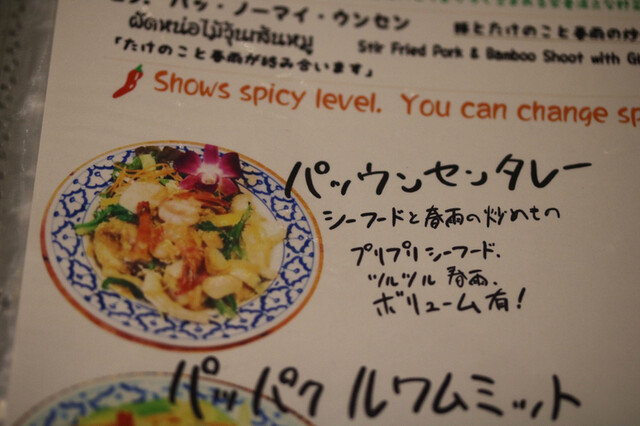 パッ・ノーマイ・ウンセン
豚とたけのこと春雨の炒
ผัดหน่อไม้วุ้นเส้นหมู
Stir Fried Pork & Bamboo Shoot with Gl
「たけのこと春雨が好み合います」
Shows spicy level. You can change sp
パッウンセンタレー
シーフードと春雨の炒めもの
プリプリシーフード、
ツルツル 春雨、
ボリューム有!
パッパクルワムミット